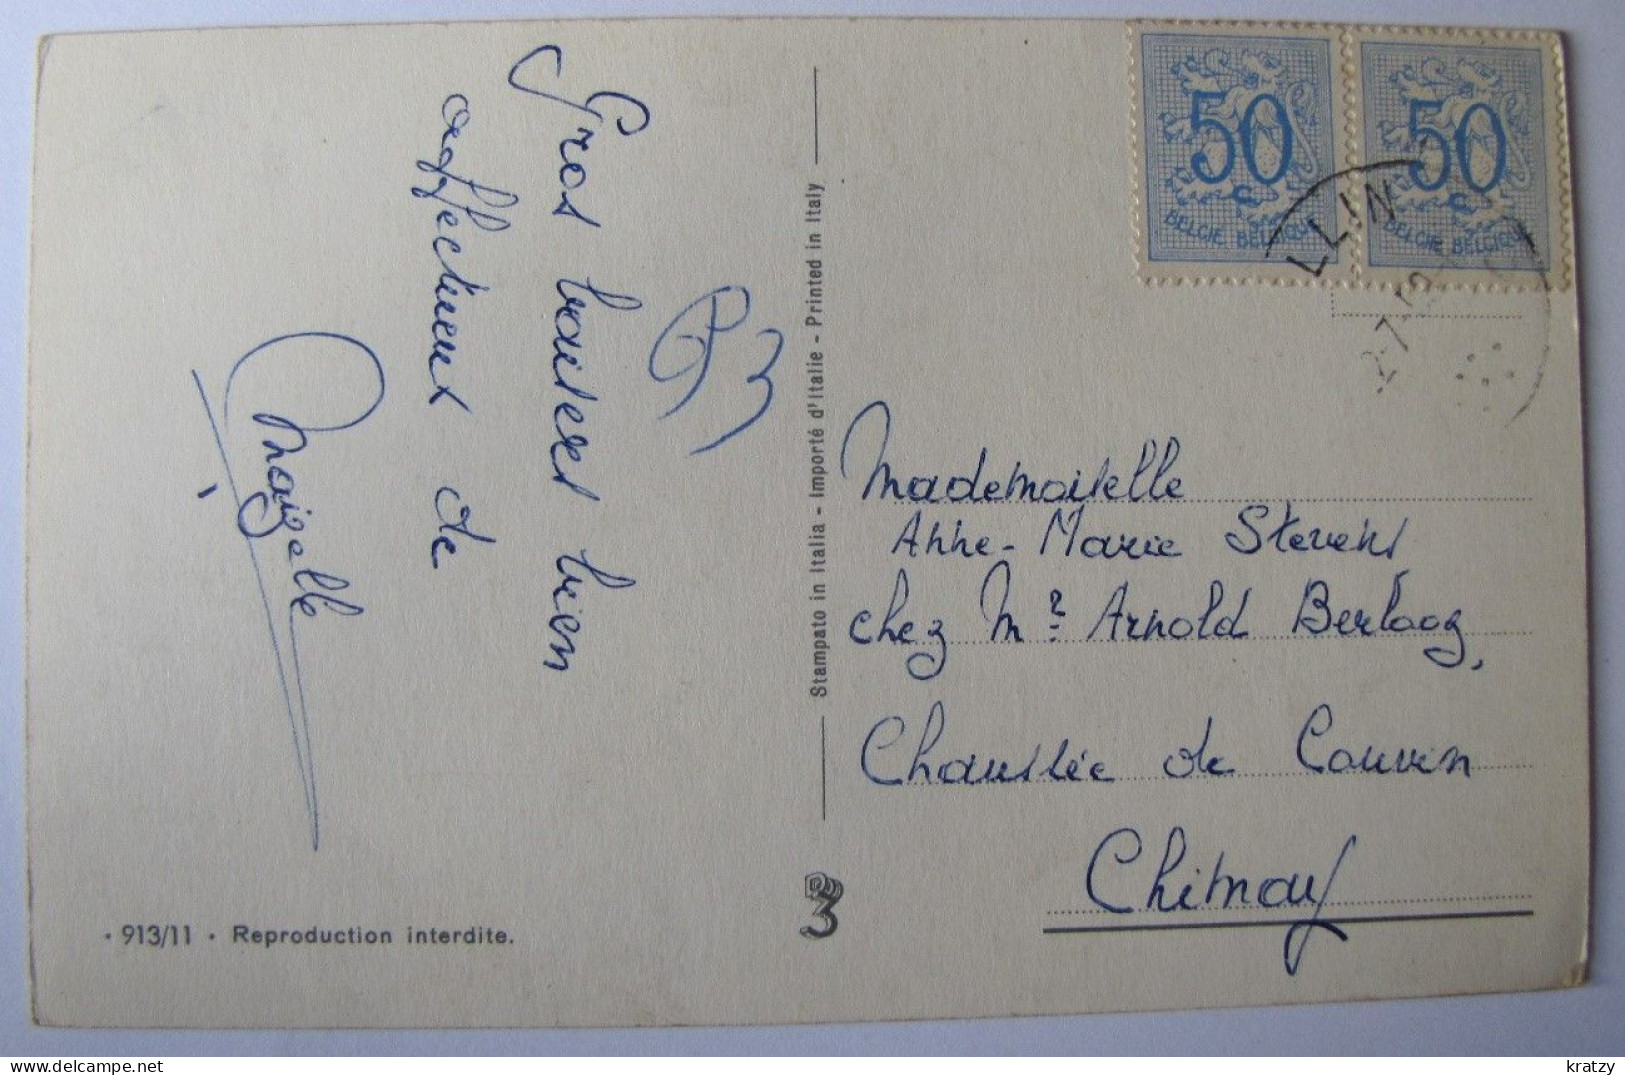 Gros baisers bien
affectueux de
50
BELGIE BELGIQUE
50
BELGIE BELGIQUE
LLIN
Stampato in Italia - Importé d'Italie - Printed in Italy
Mademoiselle
Anne-Marie Stevens
chez Mr Arnold
Chaussée de Couvin
Chimay
3
• 913/11 • Reproduction interdite.
kratzy